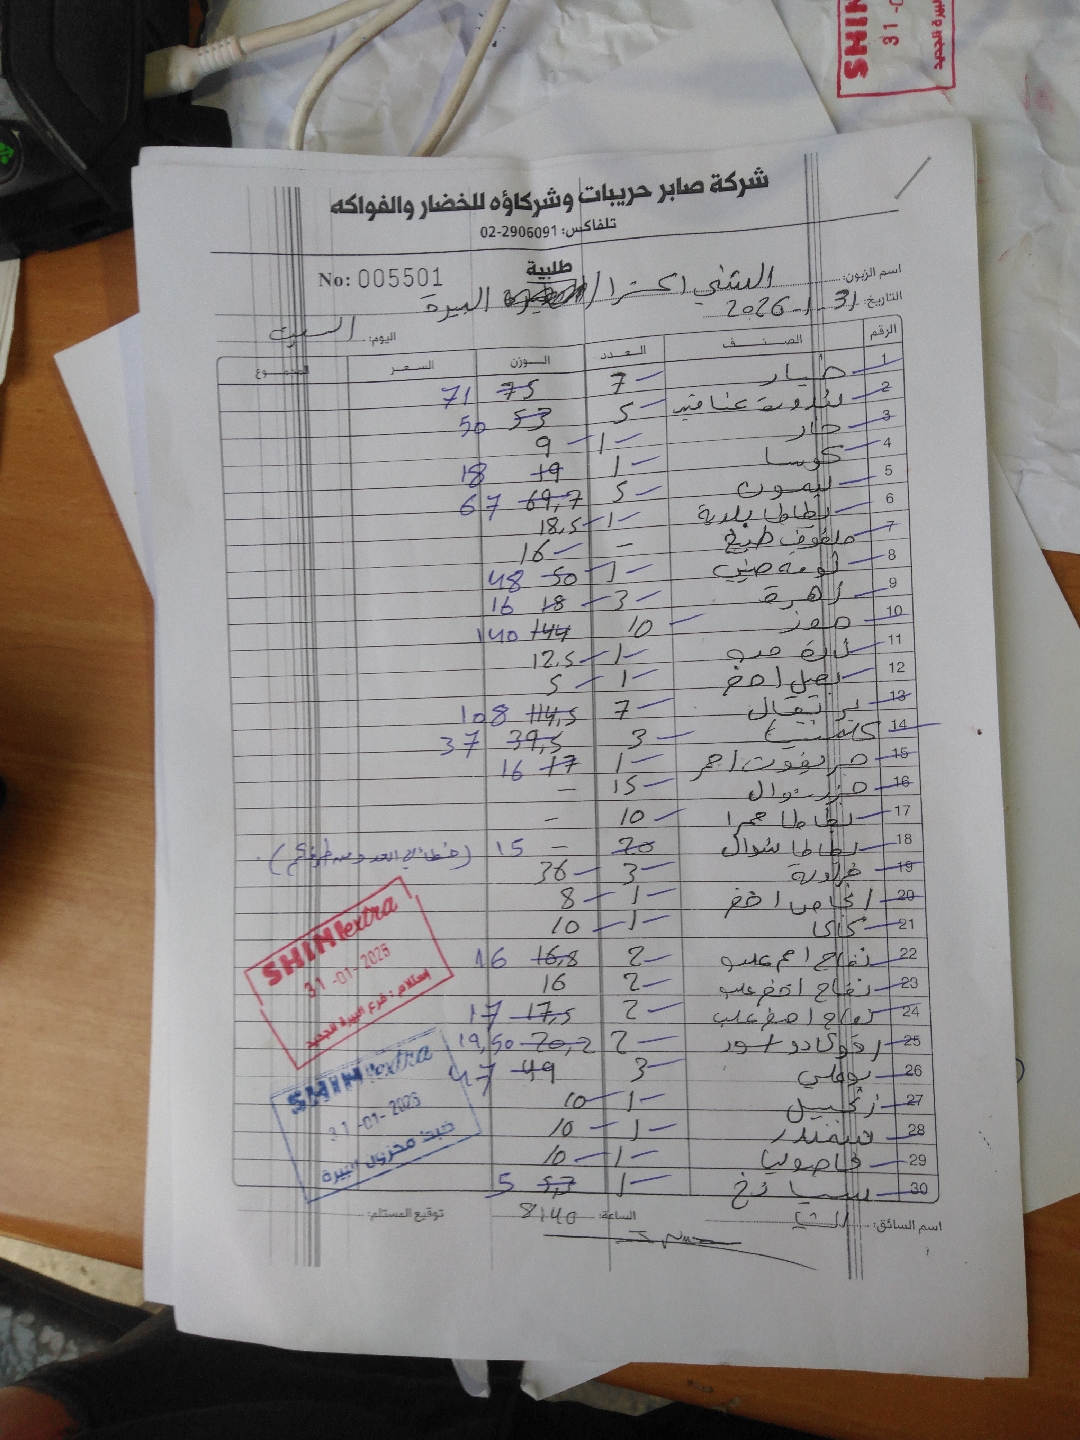 شركة صابر حريبات وشركاؤه للخضار والفواكه
تلفاكس: 02-2906091
طلبية
No: 005501
اسم الزبون: الشني اكسترا / البيرة
التاريخ: 31-1-2026
اليوم: السبت
الرقم الصنف العدد الوزن السعر المجموع
1 خيار 7 75 71
2 بندورة عناقيد 5 53 50
3 حار 1 9
4 كوسا 1 19 18
5 ليمون 5 69,7 67
6 بطاطا بلدية 1 18,5
7 ملفوف طبخ - 16
8 ثومة صيني 1 50 48
9 زهرة 3 18 16
10 موز 10 144 140
11 1 12,5
12 بصل اخضر 1 5
13 برتقال 7 114,5 108
14 كلمنتينا 3 39,5 37
15 جريفوت احمر 1 17 16
16 جزر شوال 15 -
17 بطاطا حمرا 10 -
18 بطاطا شوال 20 - 15
19 3 36
20 اخضر 1 8
21 كاكا 1 10
22 تفاح احمر علب 2 16,8 16
23 تفاح اخضر علب 2 16
24 تفاح اصفر علب 2 17,5 17
25 افوكادو اسود 2 20,2 19,50
26 بوملي 3 49 47
27 زنجبيل 1 10
28 شمندر 1 10
29 فاصوليا 1 10
30 سبانخ 1 5,3 5
SHINI extra
31-01-2026
إستلام: فرع البيرة الجديد
SHINI extra
31-01-2026
اسم السائق:
الساعة: 8:40
توقيع المستلم:
SHIN
31-0